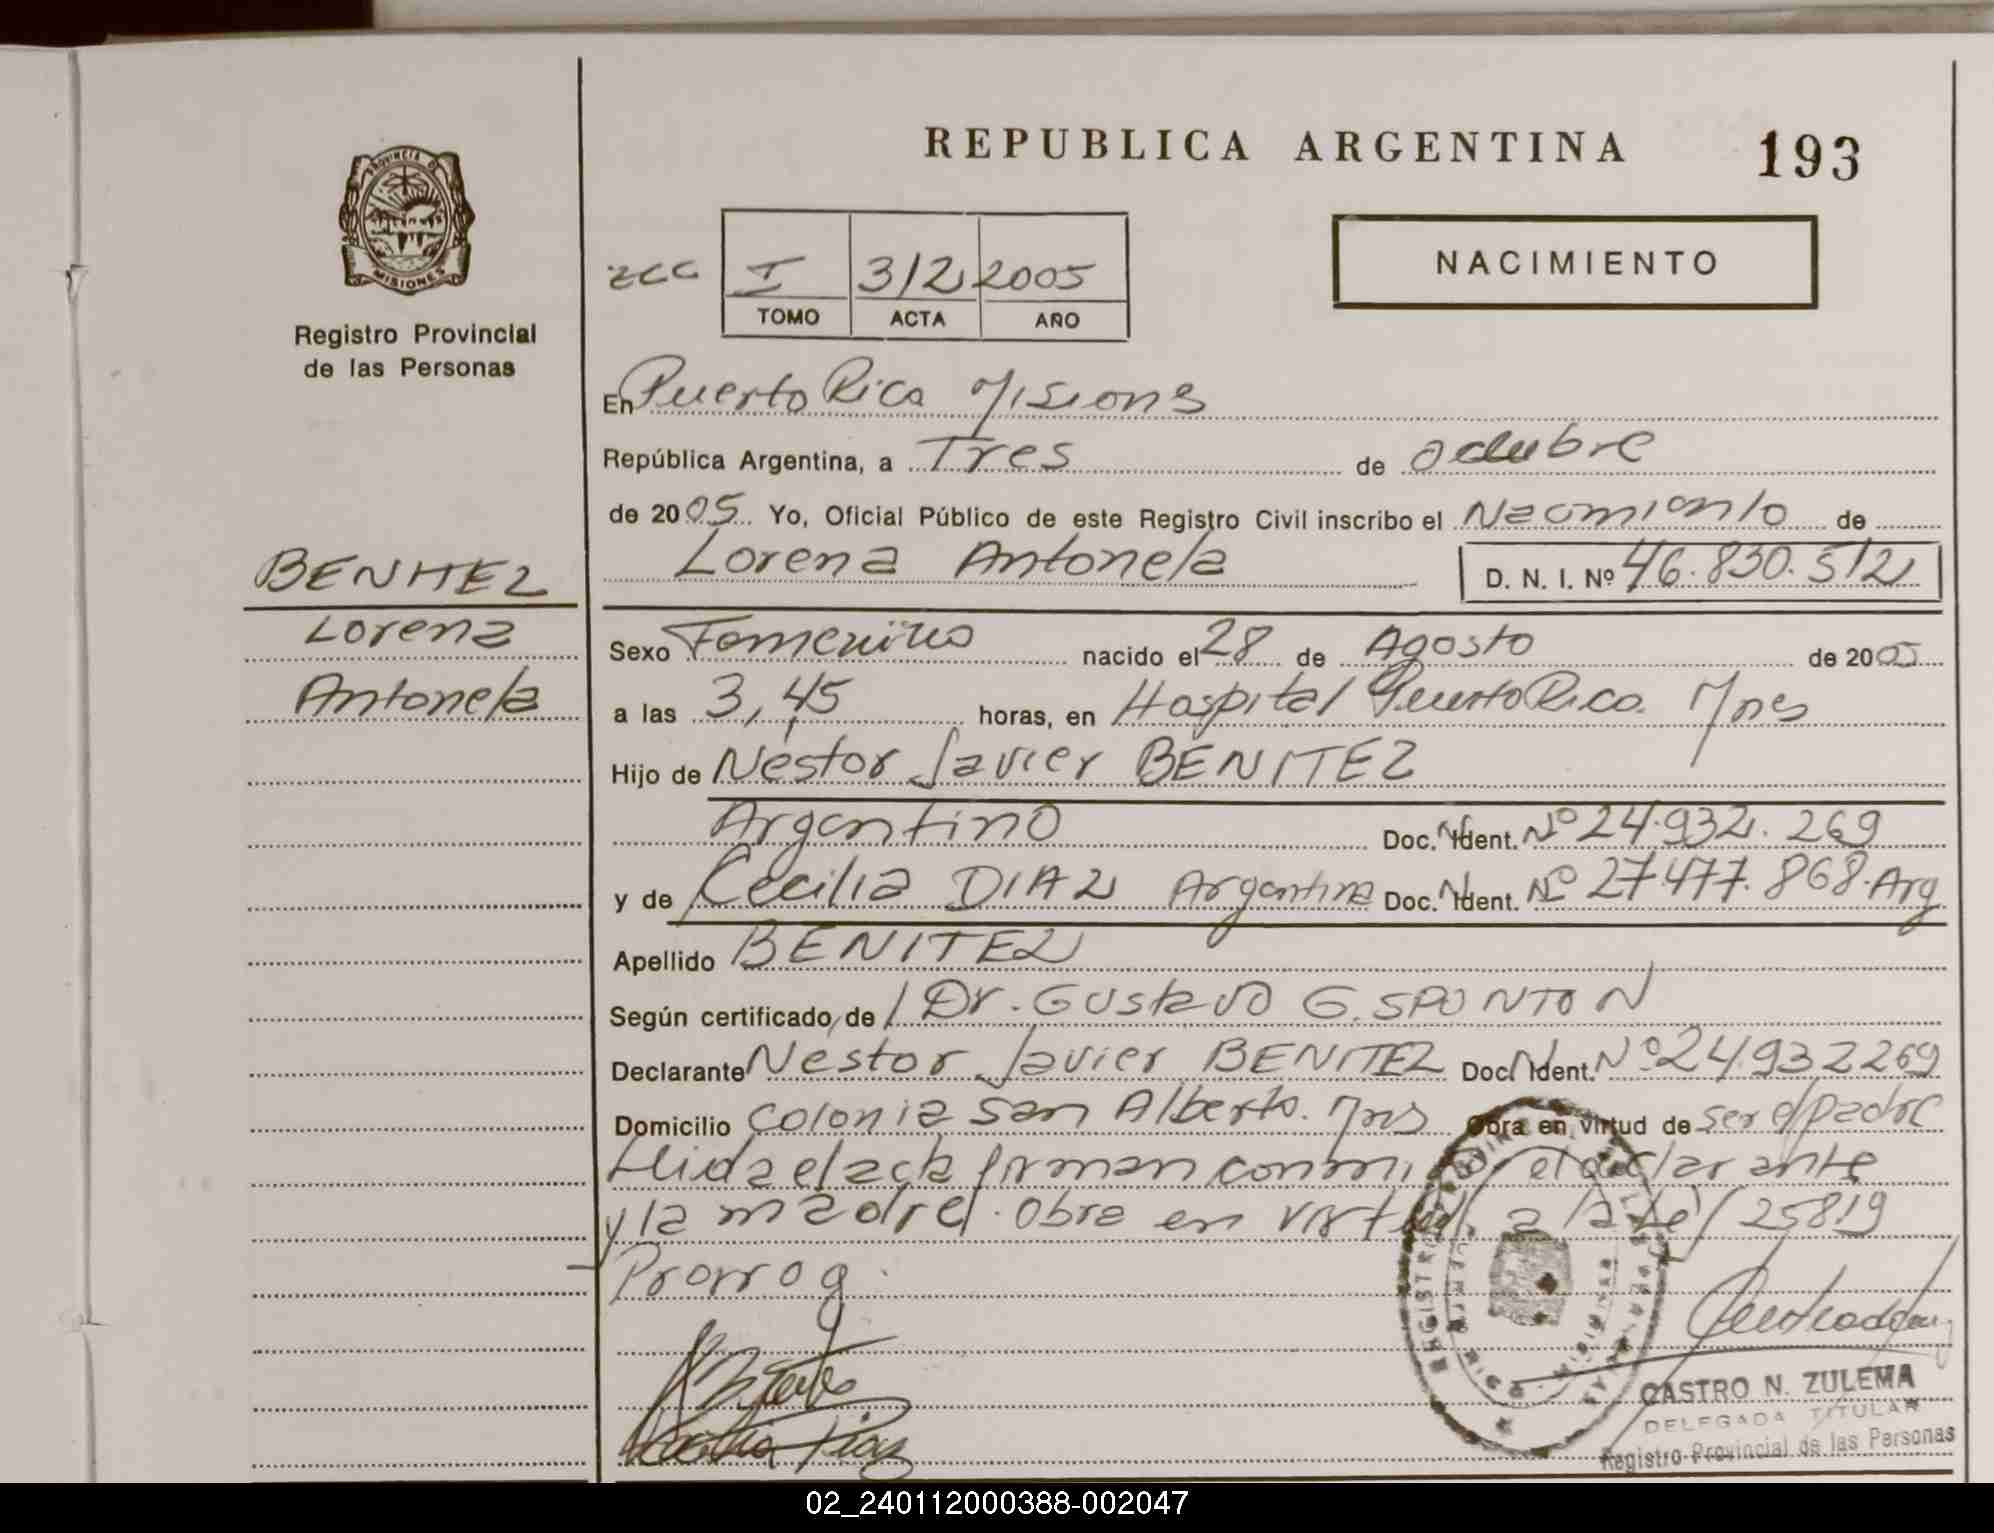 REPUBLICA ARGENTINA 193
PROVINCIA DE
MISIONES
Registro Provincial
de las Personas
NACIMIENTO
I 312 2005
TOMO ACTA AÑO
En Puerto Rico Misiones
República Argentina, a Tres de octubre
de 2005 Yo, Oficial Público de este Registro Civil inscribo el Nacimiento de
Lorena Antonela D. N. I. Nº 46.830.512
BENITEZ
Lorena
Antonela
Sexo Femenino nacido el 28 de Agosto de 2005
a las 3,45 horas, en Hospital Puerto Rico. Mnes
Hijo de Néstor Javier BENITEZ
Argentino Doc. Ident. Nº 24.932.269
y de Cecilia DIAZ Argentina Doc. Ident. Nº 27.477.868. Arg
Apellido BENITEZ
Según certificado, de Dr. Gustavo G. SPONTON
Declarante Néstor Javier BENITEZ Doc. Ident. Nº 24.932269
Domicilio Colonia San Alberto. Mns Obra en virtud de ser el padre
Leida el acta firman conmigo el declarante
y la madre. Obra en virtud a la ley 25819
Prorrog.
CASTRO N. ZULEMA
DELEGADA TITULAR
Registro Provincial de las Personas
02_240112000388-002047